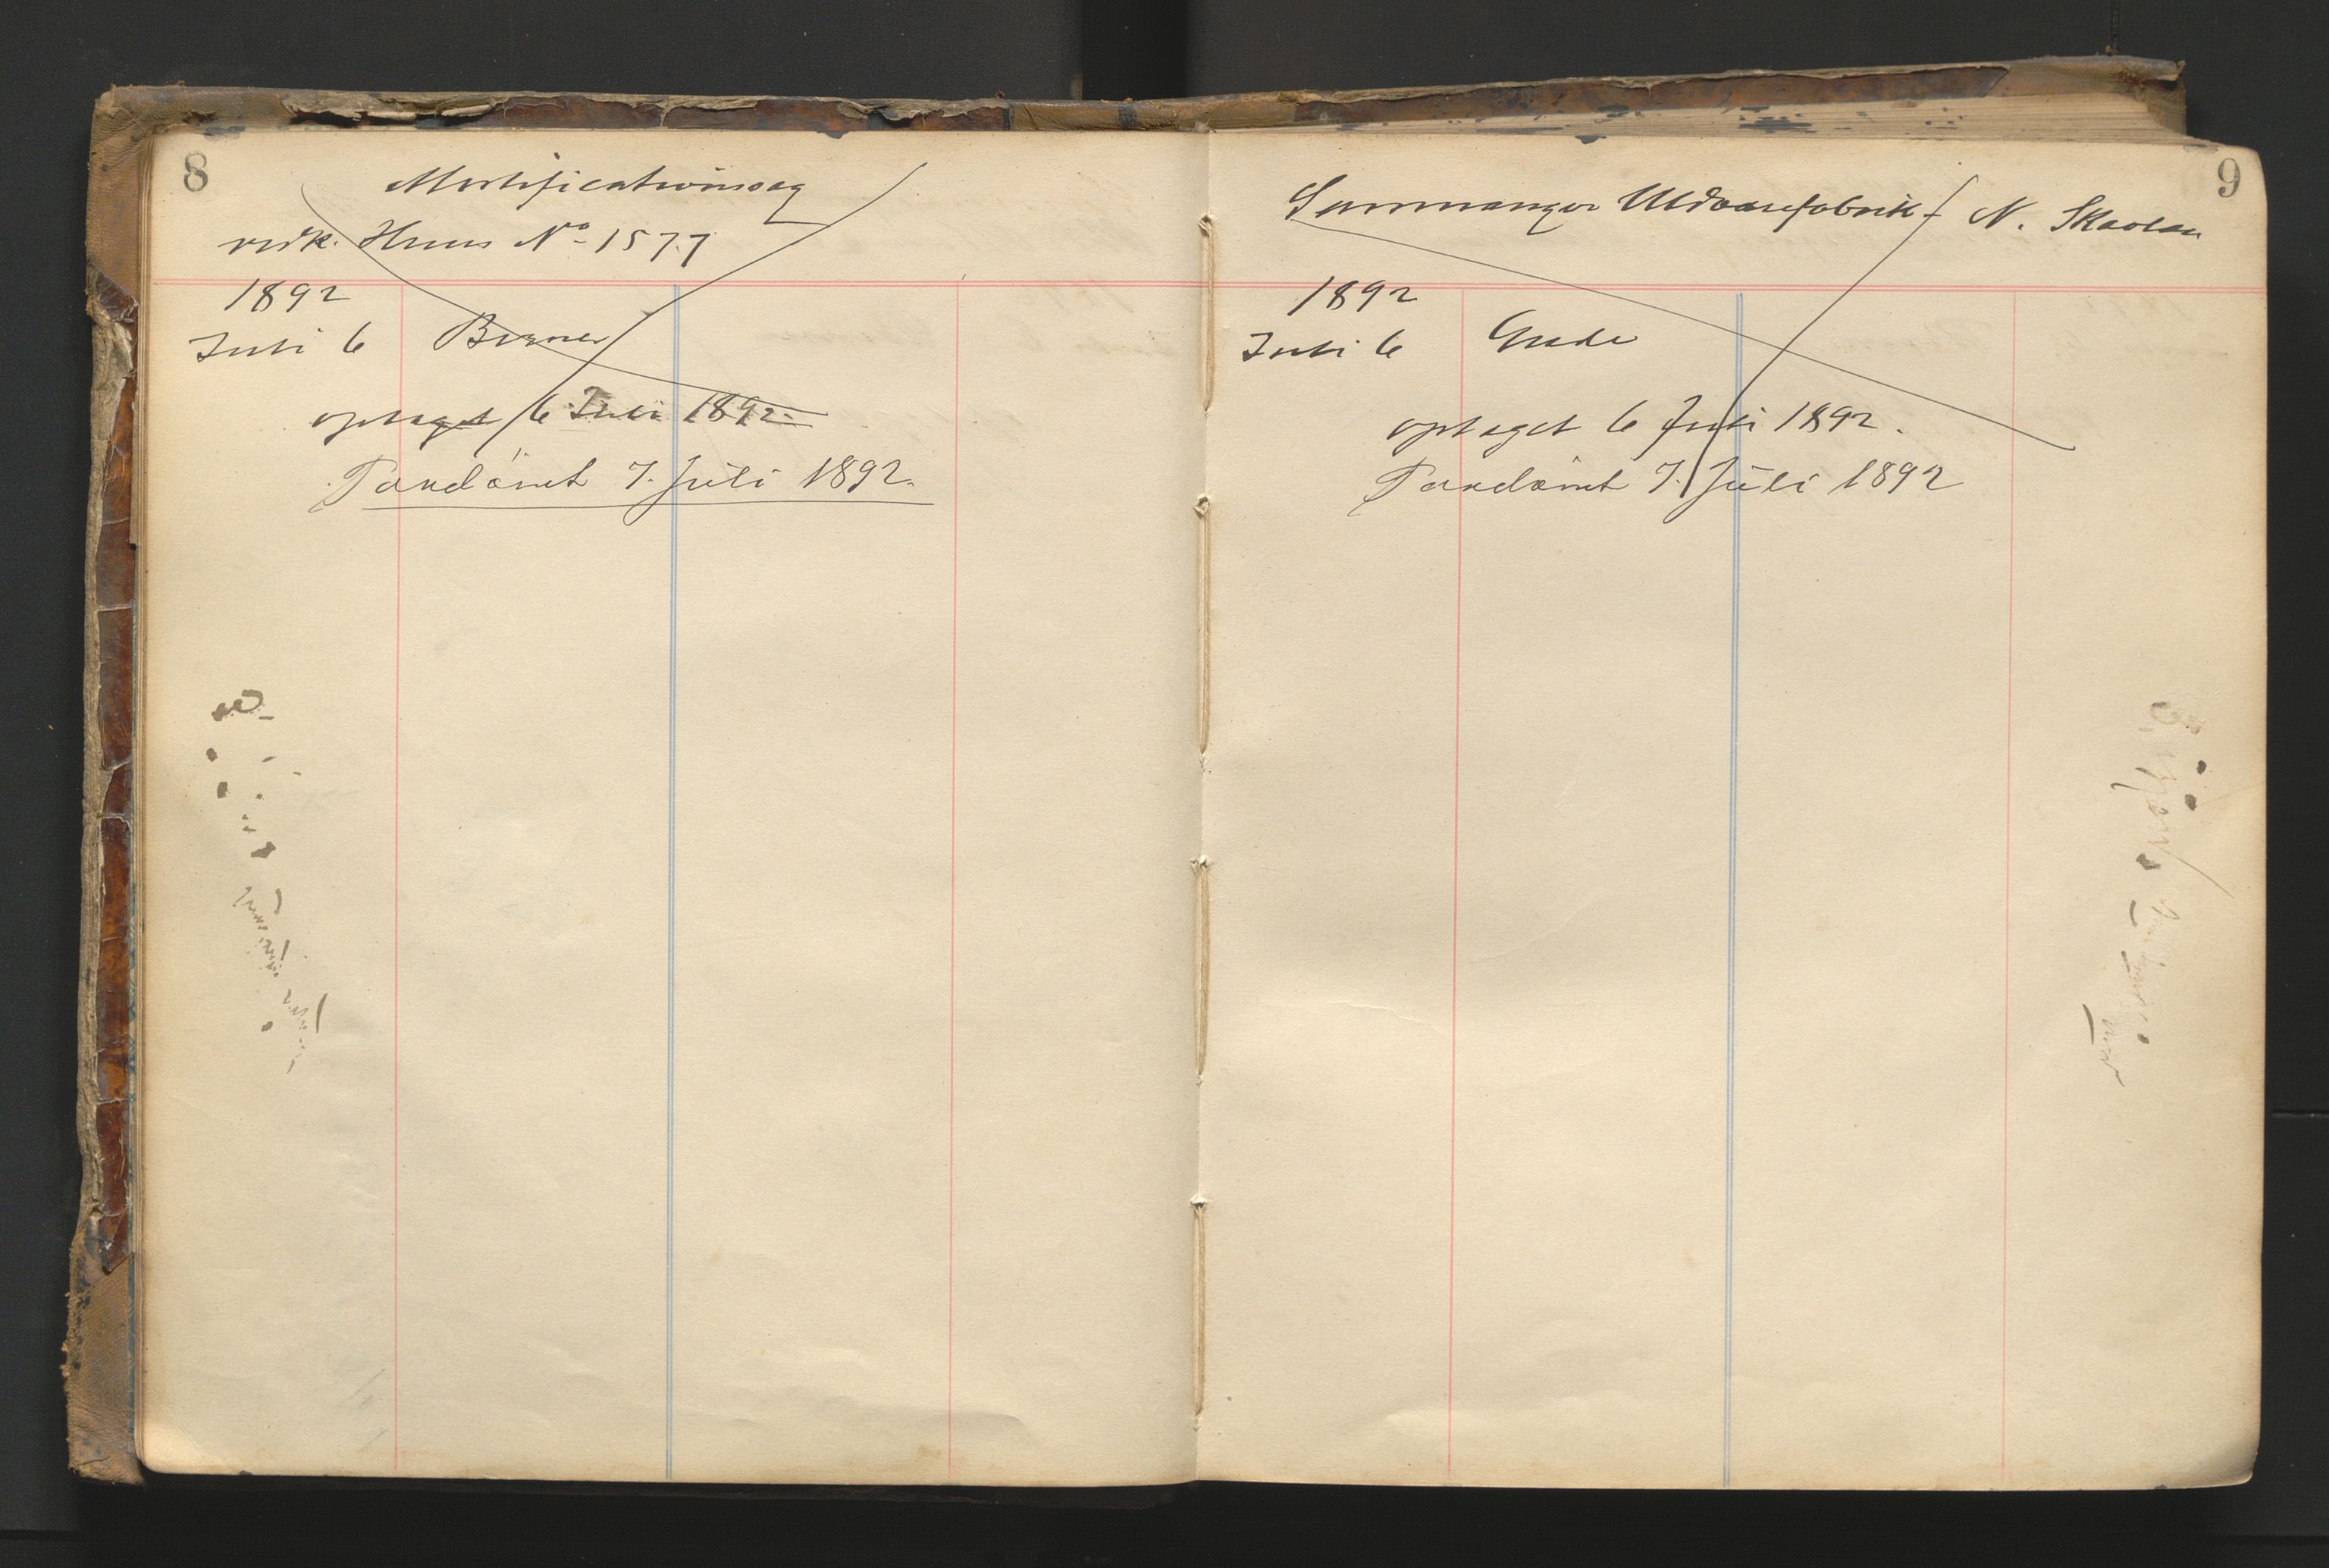 8
Mortificationssag
vedk. Huus No 1577
1892
Juli 6 Berner
optaget 6 Juli 1892.
Paadömt 7. Juli 1892.
9
Sammanger Uldvarefabrik ÷ N.
1892
Juli 6 Grede
optaget 6 Juli 1892.
Paadömt 7. Juli 1892